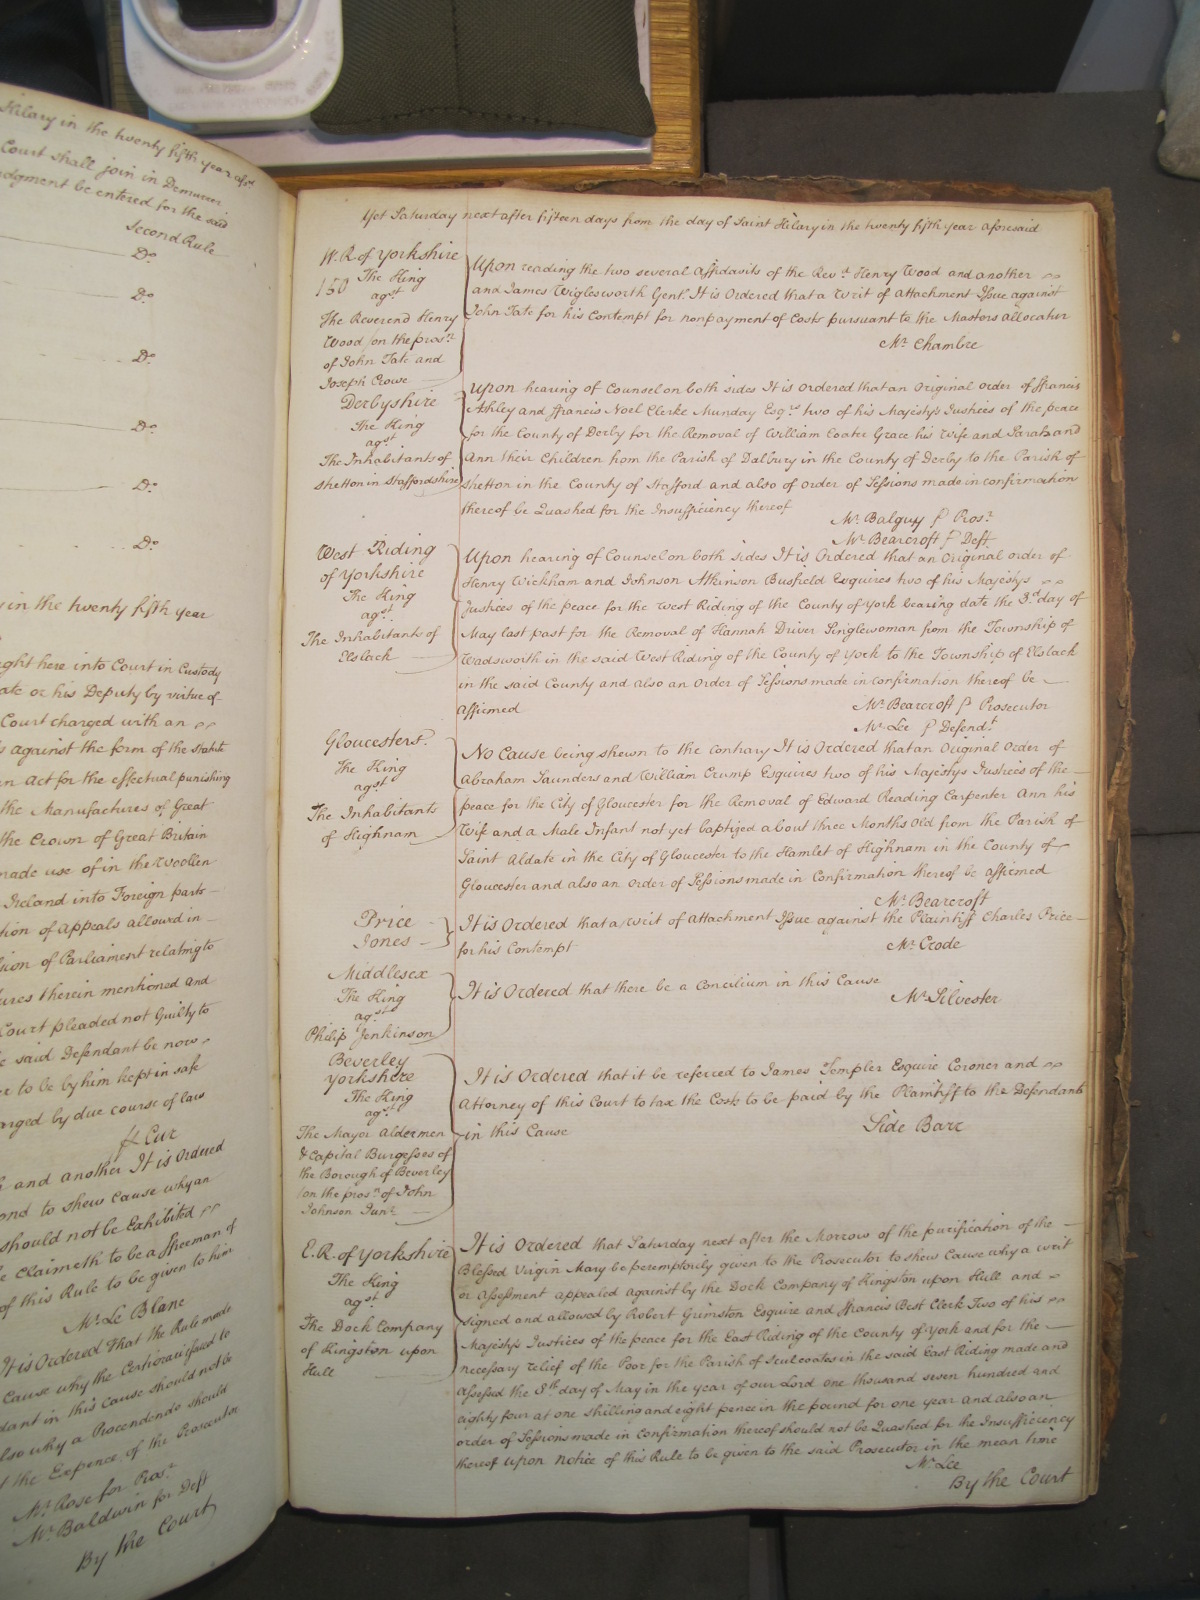 Hilary in the twenty fifth year afsd
Court shall join in Demurrer
udgment be entered for the said
Second Rule
Do
Do
Do
Do
Do
Do
y in the twenty fifth year
ught here into Court in Custody
ate or his Deputy by virtue of
Court charged with an
s against the form of the statute
an Act for the effectual punishing
the Manufactures of Great
the Crown of Great Britain
made use of in the Woollen
Ireland into Foreign parts
tion of Appeals allowed in
sion of Parliament relating to
ures therein mentioned and
Court pleaded not Guilty to
e said Defendant be now
er to be by him kept in safe
arged by due course of law
and another It is Ordered
ond to shew Cause why an
should not be Exhibited
e Claimeth to be a ffreeman of
of this Rule to be given to him
Mr. Le Blanc
It is Ordered That the Rule made
Cause why the Certiorari issued to
dant in this Cause should not be
also why a Procedendo should
t the Expence of the Prosecutor
Mr. Rose for Prosr.
Mr. Baldwin for Deft
By the Court
Yet Saturday next after fifteen days from the day of Saint Hilary in the twenty fifth year aforesaid
W. R. of Yorkshire
150 The King
agst
The Reverend Henry
Wood (on the prosn.
of John Tate and
Joseph Crowe
Upon reading the two several Affidavits of the Revd. Henry Wood and another
and James Wiglesworth Gent. It is Ordered that a Writ of Attachment Issue against
John Tate for his Contempt for nonpayment of Costs pursuant to the Masters allocatur
Mr. Chambre
Derbyshire
The King
agst.
The Inhabitants of
Shetton in Staffordshire
Upon hearing of Counsel on both sides It is Ordered that an Original Order of ffrancis
Ashley and ffrancis Noel Clerke Munday Esqrs. two of his Majestys Justices of the peace
for the County of Derby for the Removal of William Coater Grace his Wife and Sarah and
Ann their Children from the Parish of Dalbury in the County of Derby to the Parish of
Shetton in the County of Stafford and also of Order of Sessions made in confirmation
thereof be Quashed for the Insufficiency thereof
Mr. Balguy p Prosr.
Mr. Bearcroft p Deft
West Riding
of Yorkshire
The King
agst.
The Inhabitants of
Elslack
Upon hearing of Counsel on both sides It is Ordered that an Original order of
Henry Wickham and Johnson Atkinson Busfield Esquires two of his Majestys
Justices of the peace for the West Riding of the County of York bearing date the 3.d day of
May last past for the Removal of Hannah Driver Singlewoman from the Township of
Wadsworth in the said West Riding of the County of York to the Township of Elslack
in the said County and also an Order of Sessions made in confirmation thereof be
affirmed
Mr. Bearcroft p Prosecutor
Mr. Lee p Defendt.
Gloucesters.
The King
agst
The Inhabitants
of Highnam
No Cause being shewn to the contrary It is Ordered that an Original Order of
Abraham Saunders and William Crump Esquires two of his Majestys Justices of the
peace for the City of Gloucester for the Removal of Edward Reading Carpenter Ann his
Wife and a Male Infant not yet baptized about three Months Old from the Parish of
Saint Aldate in the City of Gloucester to the Hamlet of Highnam in the County of
Gloucester and also an Order of Sessions made in Confirmation thereof be affirmed
Mr. Bearcroft
Price
Jones
It is Ordered that a Writ of Attachment Issue against the Plaintiff Charles Price
for his Contempt
Mr. Crode
Middlesex
The King
agst
Philip Jenkinson
It is Ordered that there be a Concilium in this Cause
Mr. Silvester
Beverley
Yorkshire
The King
agst
The Mayor Aldermen
& Capital Burgesses of
the Borough of Beverley
(on the prosn. of John
Johnson Junr.
It is Ordered that it be referred to James Templer Esquire Coroner and
Attorney of this Court to tax the Costs to be paid by the Plaintiff to the Defendants
in this Cause
Side Barr
E. R. of Yorkshire
The King
agst
The Dock Company
of Kingston upon
Hull
It is Ordered that Saturday next after the Morrow of the purification of the
Blessed Virgin Mary be peremptorily given to the Prosecutor to shew Cause why a writ
or Assessment appealed against by the Dock Company of Kingston upon Hull and
signed and allowed by Robert Grimston Esquire and ffrancis Best Clerk Two of his
Majestys Justices of the peace for the East Riding of the County of York and for the
necessary relief of the Poor for the Parish of Sculcoates in the said East Riding made and
assessed the 8th. day of May in the year of our Lord one thousand seven hundred and
eighty four at one shilling and eight pence in the pound for one year and also an
order of Sessions made in Confirmation thereof should not be Quashed for the Insufficiency
thereof upon notice of this Rule to be given to the said Prosecutor in the mean time
Mr. Lee
By the Court